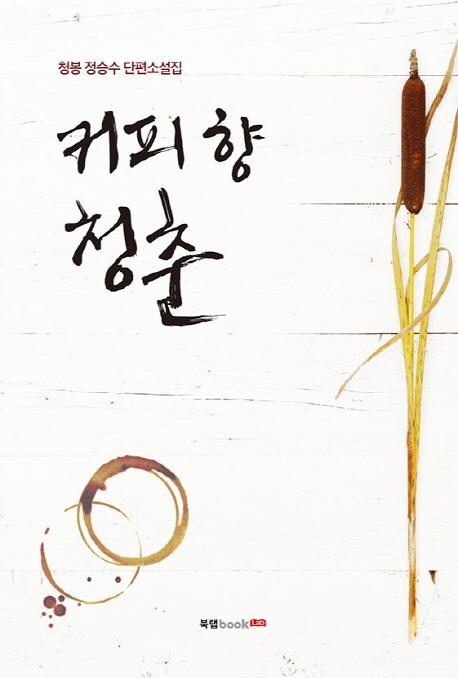 청봉 정승수 단편소설집
커피 향
청춘
북랩book Lab